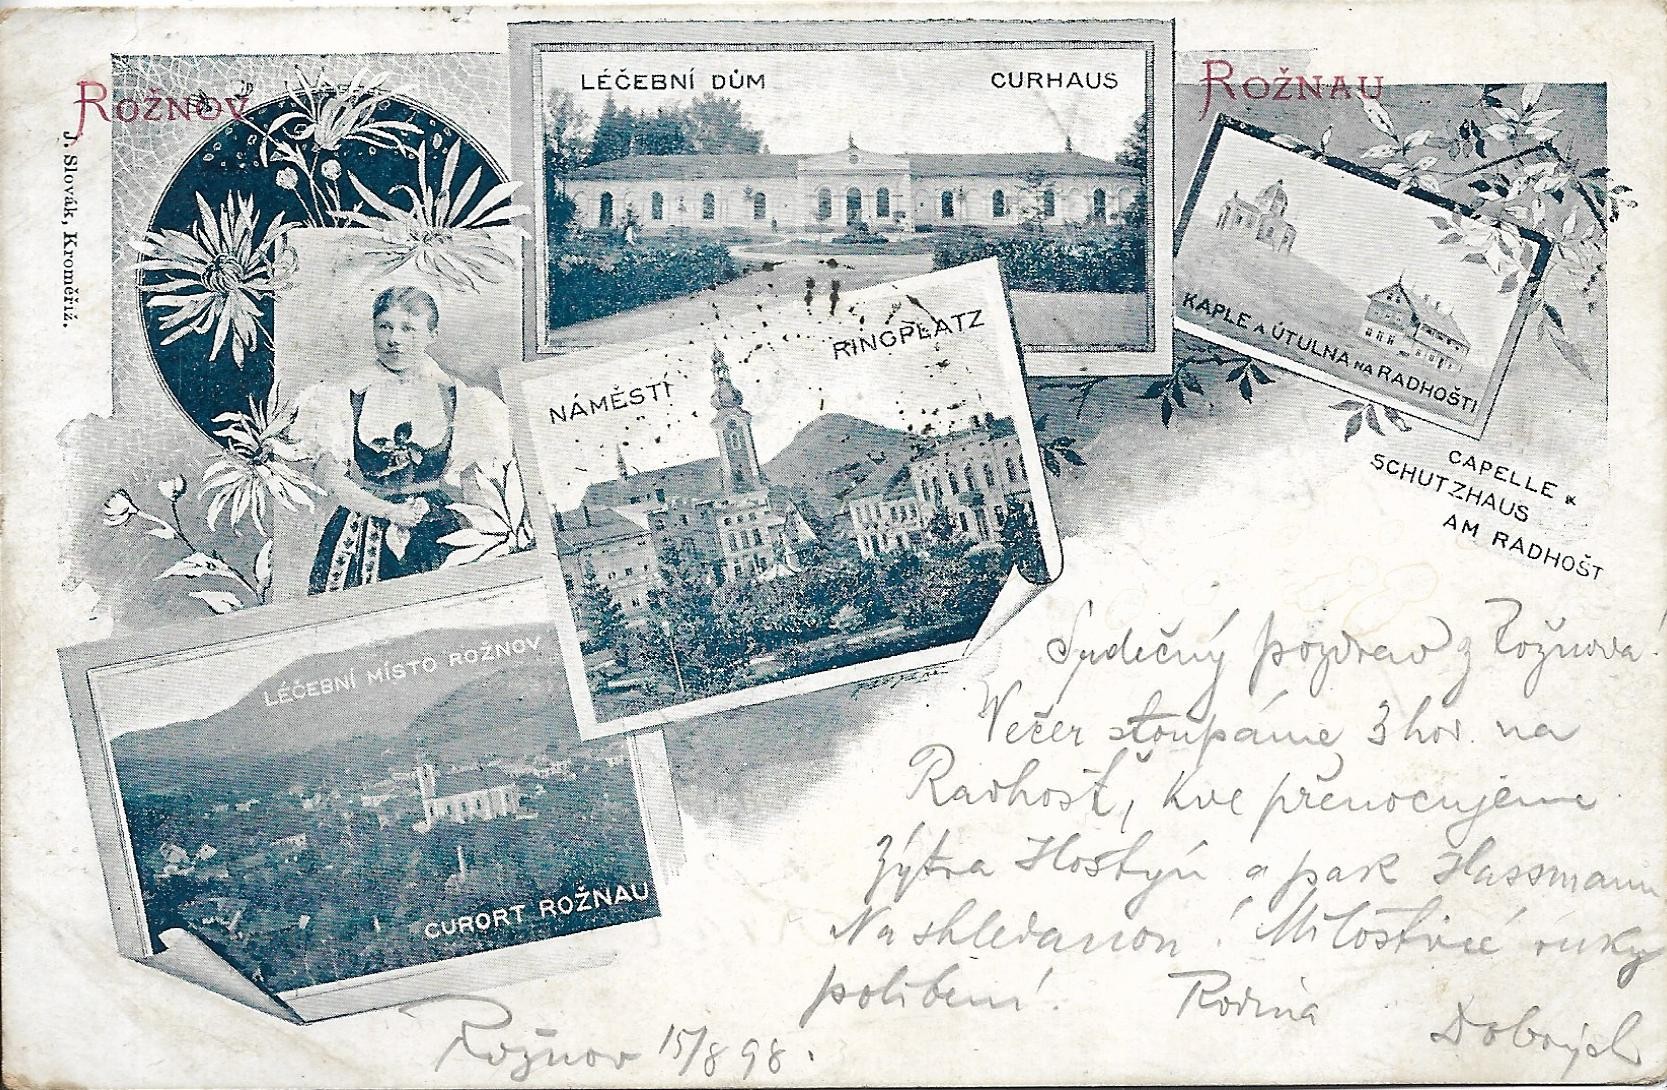 ROŽNOV
ROŽNAU
J. Slovák, Kroměříž.
LÉČEBNÍ DŮM
CURHAUS
NÁMĚSTÍ
RINGPLATZ
KAPLE A ÚTULNA NA RADHOŠTI
CAPELLE &
SCHUTZHAUS
AM RADHOŠT
LÉČEBNÍ MÍSTO ROŽNOV
CURORT ROŽNAU
Srdečný pozdrav z Rožnova!
Večer stoupáme 3 hod. na
Radhošť, kde přenocujeme
Zýtra Hostýn a pak Hassmann
Na shledanou! Milostivé ruky
políbení. Rodina
Dobrých
Rožnov 15/8 98.